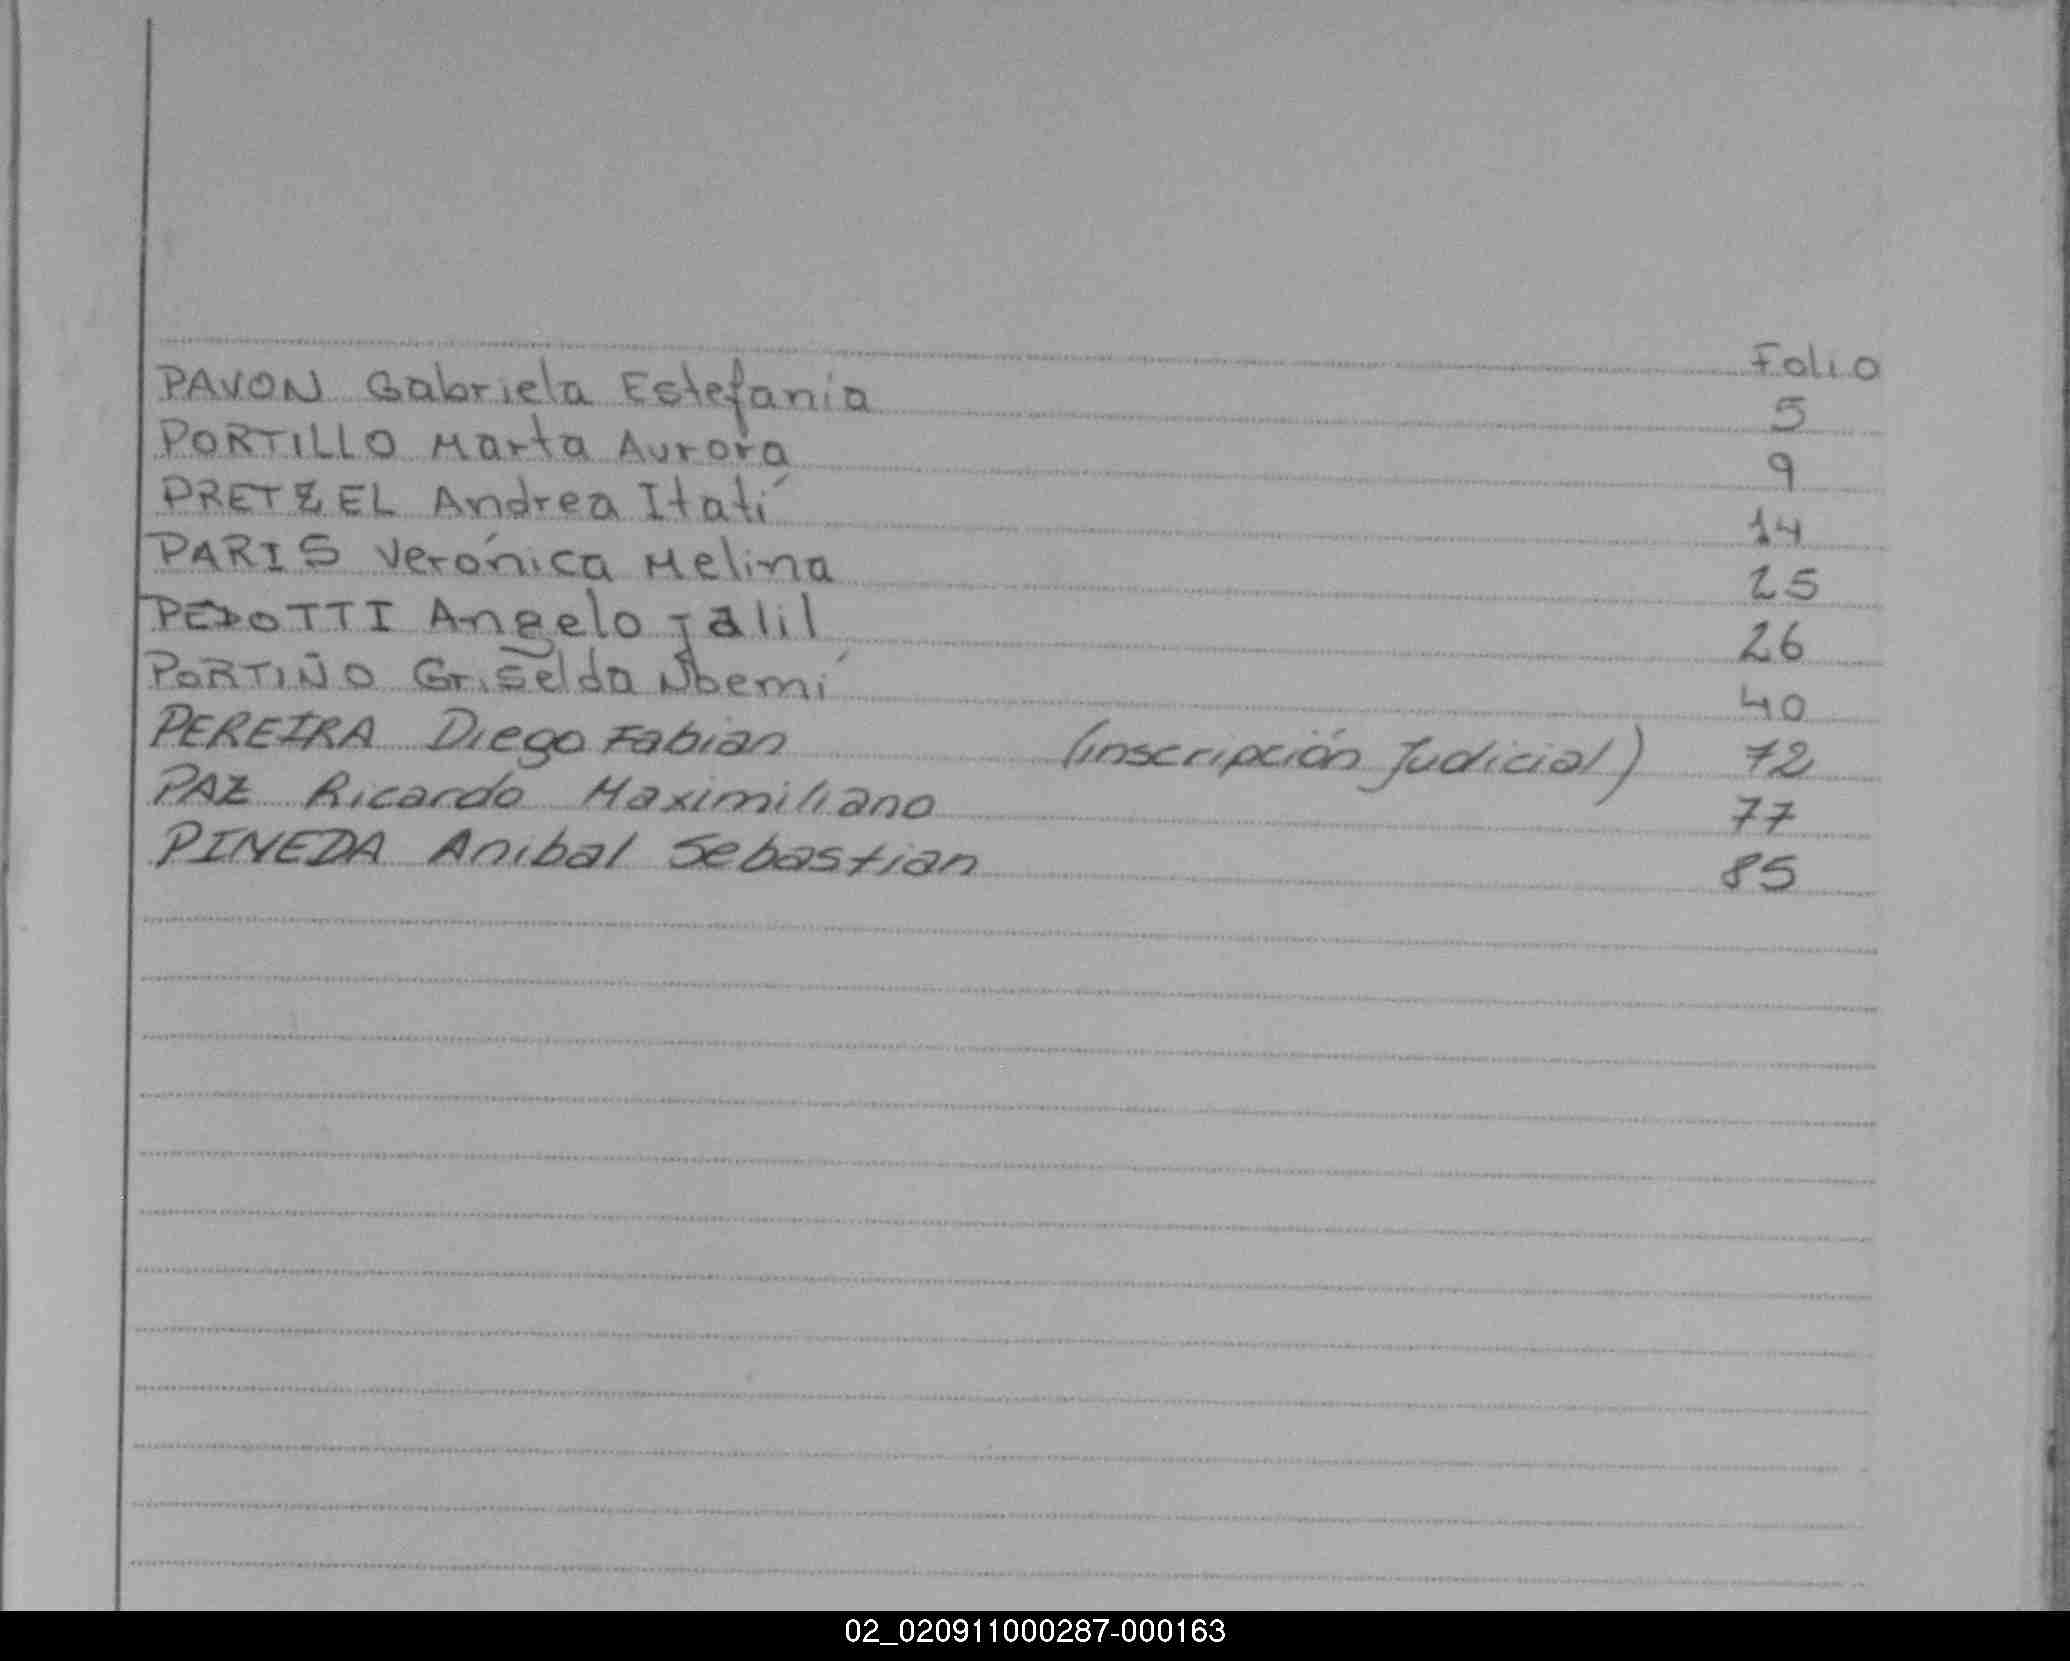 Folio
PAVON Gabriela Estefanía 5
PORTILLO Marta Aurora 9
PRETZEL Andrea Itatí 14
PARIS Verónica Melina 25
PEDOTTI Angelo Jalil 26
PORTIÑO Griselda Noemí 40
PEREIRA Diego Fabian (inscripción Judicial) 72
PAZ Ricardo Maximiliano 77
PINEDA Anibal Sebastian 85
02_020911000287-000163